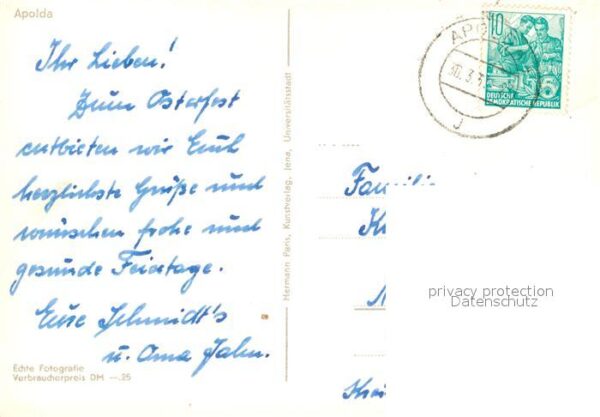 Apolda
Ihr Lieben!
Zum Osterfest
entbieten wir Euch
herzlichste Grüße und
wünschen frohe und
gesunde Feiertage.
Eure Schmidt's
u. Oma Jahn.
Echte Fotografie
Verbraucherpreis DM —.25
Hermann Paris, Kunstverlag, Jena, Universitätsstadt
10
DEUTSCHE
DEMOKRATISCHE REPUBLIK
APO
J
Familie
privacy protection
Datenschutz